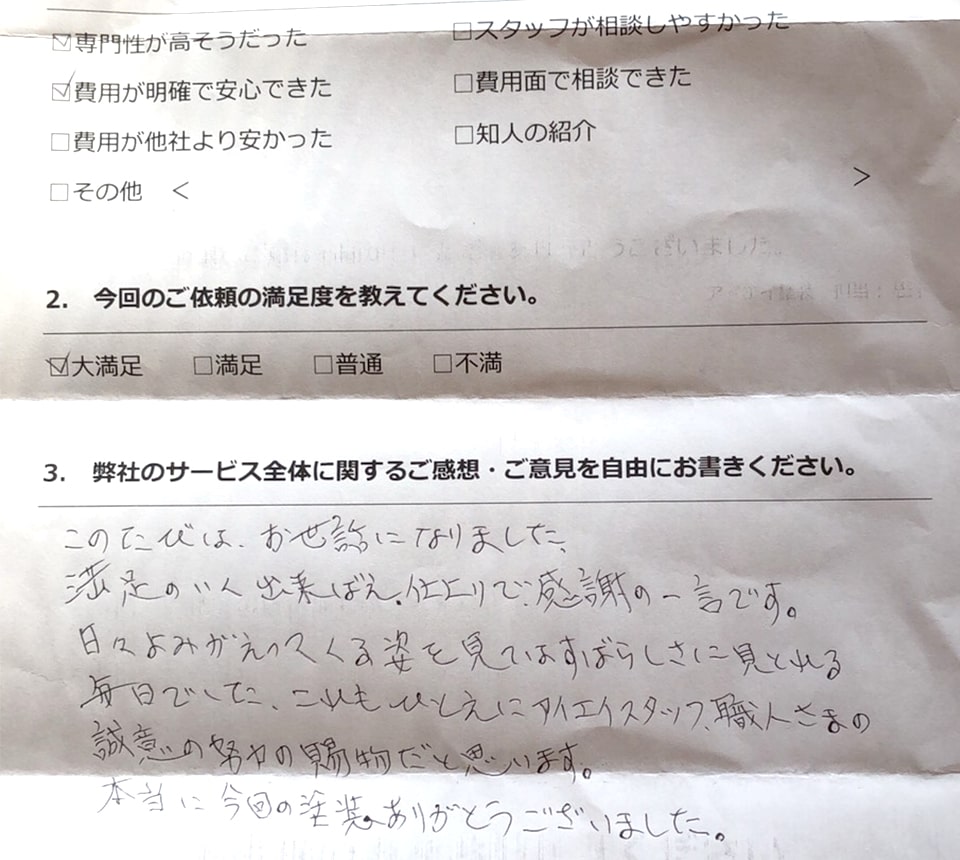 ☑専門性が高そうだった　□スタッフが相談しやすかった
☑費用が明確で安心できた　□費用面で相談できた
□費用が他社より安かった　□知人の紹介
□その他　＜　＞
2.　今回のご依頼の満足度を教えてください。
☑大満足　□満足　□普通　□不満
3.　弊社のサービス全体に関するご感想・ご意見を自由にお書きください。
このたびは、お世話になりました。
満足のいく出来ばえ、仕上りで、感謝の一言です。
日々よみがえってくる姿を見ていますばらしさに見とれる
毎日でした、これもひとえにタイエイスタッフ、職人さまの
誠意の努力の賜物だと思います。
本当に今回の塗装、ありがとうございました。